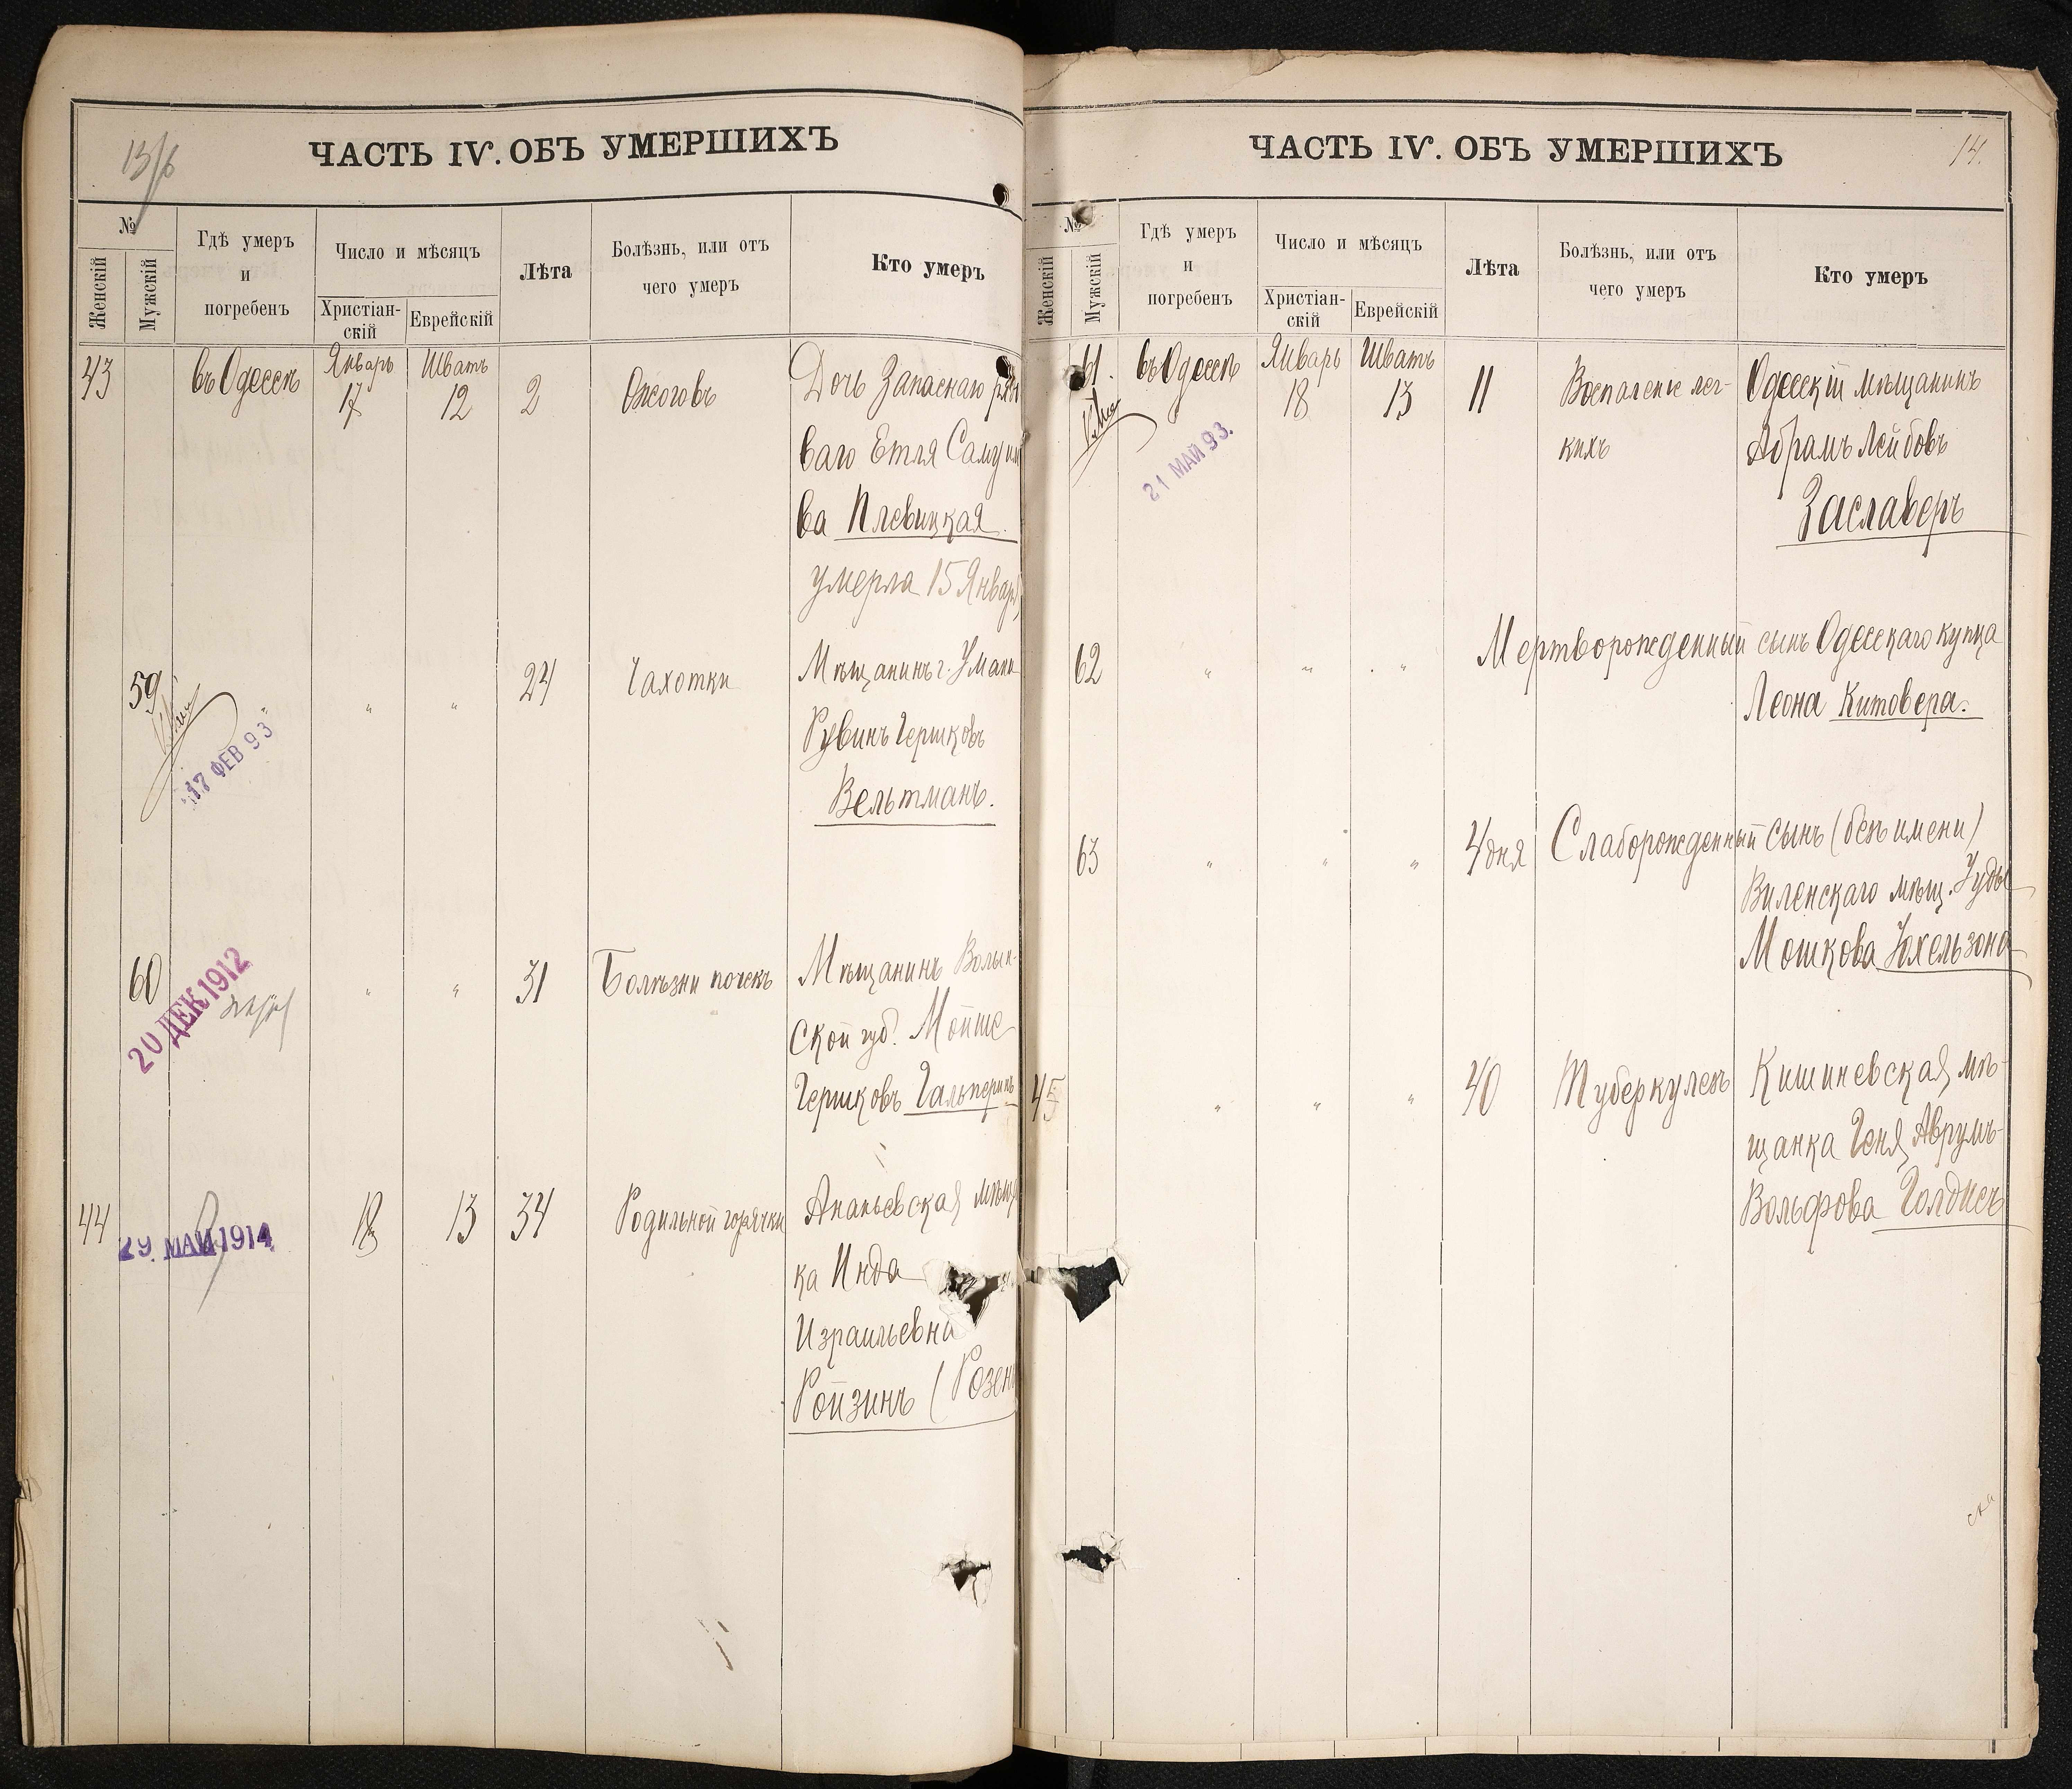 13/б
ЧАСТЬ IV. ОБЪ УМЕРШИХЪ
№
Женскій
Мужскій
Гдѣ умеръ
и
погребенъ
Число и мѣсяцъ
Христіан-
скій
Еврейскій
Лѣта
Болѣзнь, или отъ
чего умеръ
Кто умеръ
43 въ Одессѣ Январь 17 Шватъ 12 2 Ожоговъ Дочь Запаснаго рядо
ваго Етля Самуило
ва Плевицкая.
умерла 15 Января
59 " " 24 Чахотки Мѣщанинъ г. Умани
17 ФЕВ 93
Рувинъ Гершковъ
Вельтманъ.
60 " " 31 Болѣзни почекъ Мѣщанинъ Волын-
20 ДЕК 1912
ской губ. Мойше
Гершковъ Гальперинъ
44 18 13 34 Родильной горячки Ананьевская мѣщ
29. МАЙ 1914
ка Инда
Израильевна
Ройзинъ (Розен
ЧАСТЬ IV. ОБЪ УМЕРШИХЪ
14.
№
Женскій
Мужскій
Гдѣ умеръ
и
погребенъ
Число и мѣсяцъ
Христіан-
скій
Еврейскій
Лѣта
Болѣзнь, или отъ
чего умеръ
Кто умеръ
61. въ Одессѣ Январь 18 Шватъ 13 11 Воспаленіе лег- Одесскій мѣщанинъ
21 МАЙ 93.
кихъ Абрамъ Лейбовъ
Заславеръ
62 " " " Мертворожденный сынъ Одесскаго купца
Леона Китовера.
63 " " " 4 дня Слаборожденный сынъ (безъ имени)
Виленскаго мѣщ. Іуды
Мошкова Іохельзона
45 " " " 40 Туберкулезъ Кишиневская мѣ-
щанка Геня Аврумъ-
Вольфова Голдисъ